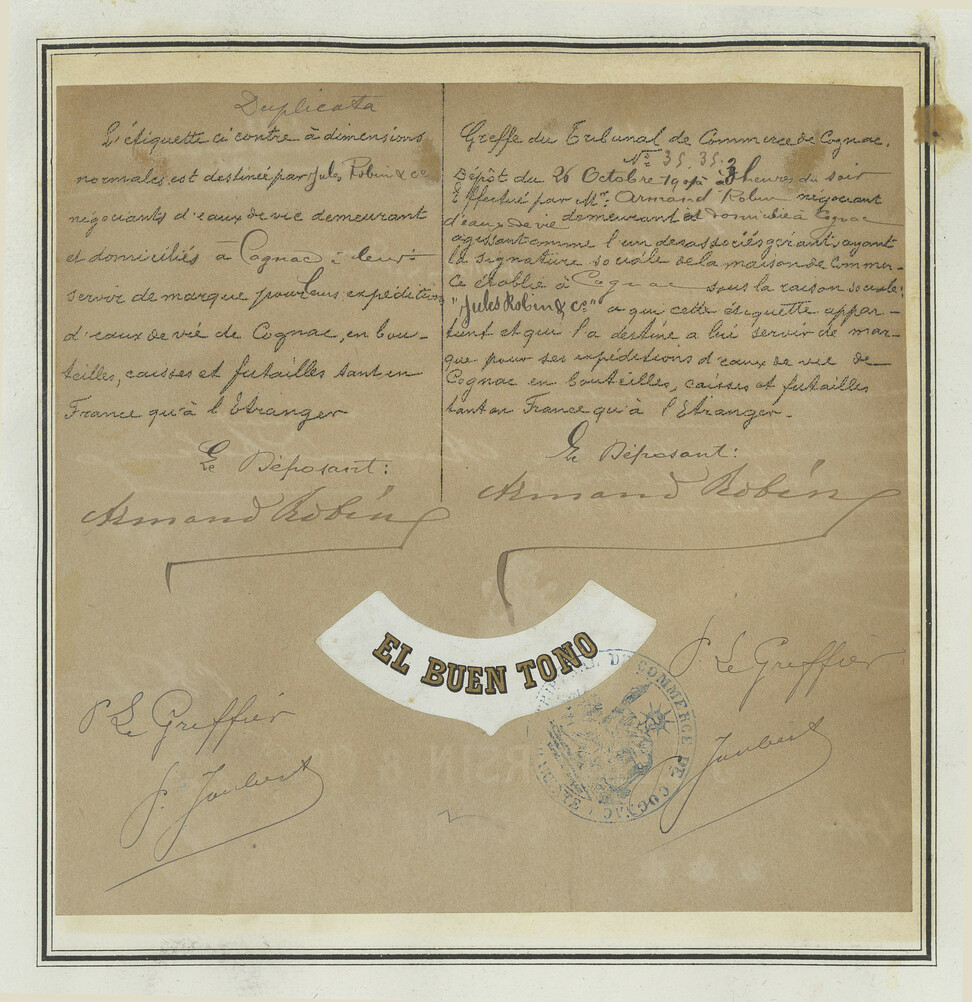 Duplicata
L'étiquette ci contre à dimensions
normales est destinée par Jules Robin & Cie
négociants d'eaux de vie demeurant
et domiciliés à Cognac à leur
servir de marque pour leurs expéditions
d'eaux de vie de Cognac, en bou-
teilles, caisses et futailles tant en
France qu'à l'Etranger
Le Déposant:
Armand Robin
Greffe du Tribunal de Commerce de Cognac.
No 35.35.
Dépôt du 26 Octobre à 3 heures du soir
Effectué par Mr. Armand Robin négociant
d'eaux de vie demeurant et domicilié à Cognac
agissant comme l'un des associés gérants, ayant
la signature sociale de la maison de Commer-
ce établie à Cognac sous la raison sociale:
"Jules Robin & Co" a qui cette étiquette appar-
tient et qui l'a destine a lui servir de mar-
que pour ses expéditions d'eaux de vie de
Cognac en bouteilles, caisses et futailles
tant en France qu'à l'Etranger.
Le Déposant:
Armand Robin
EL BUEN TONO
P. Le Greffier
P. Le Greffier
Joubert
Joubert
DE COMMERCE DE COGNAC